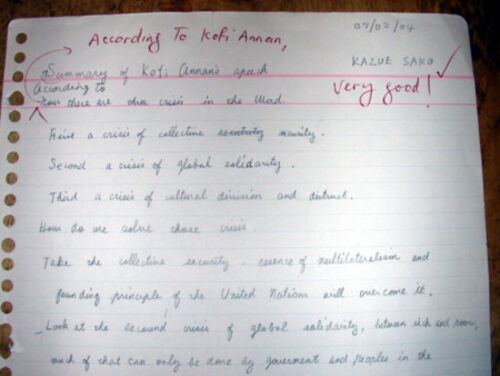 According To Kofi Annan,
07/02/04
KAZUE SAKO
Summary of Kofi Annan's speech
very good!
According to
there are three crisis in the World.
First a crisis of collective security.
Second a crisis of global solidarity.
Third a crisis of cultural division and distrust.
How do we solve those crisis
Take the collective security. essence of multilateralism and
founding principle of the United Nations will over come it.
Look at the second crisis of global solidarity, between rich and poor,
much of that can only be done by goverment and peoples in the